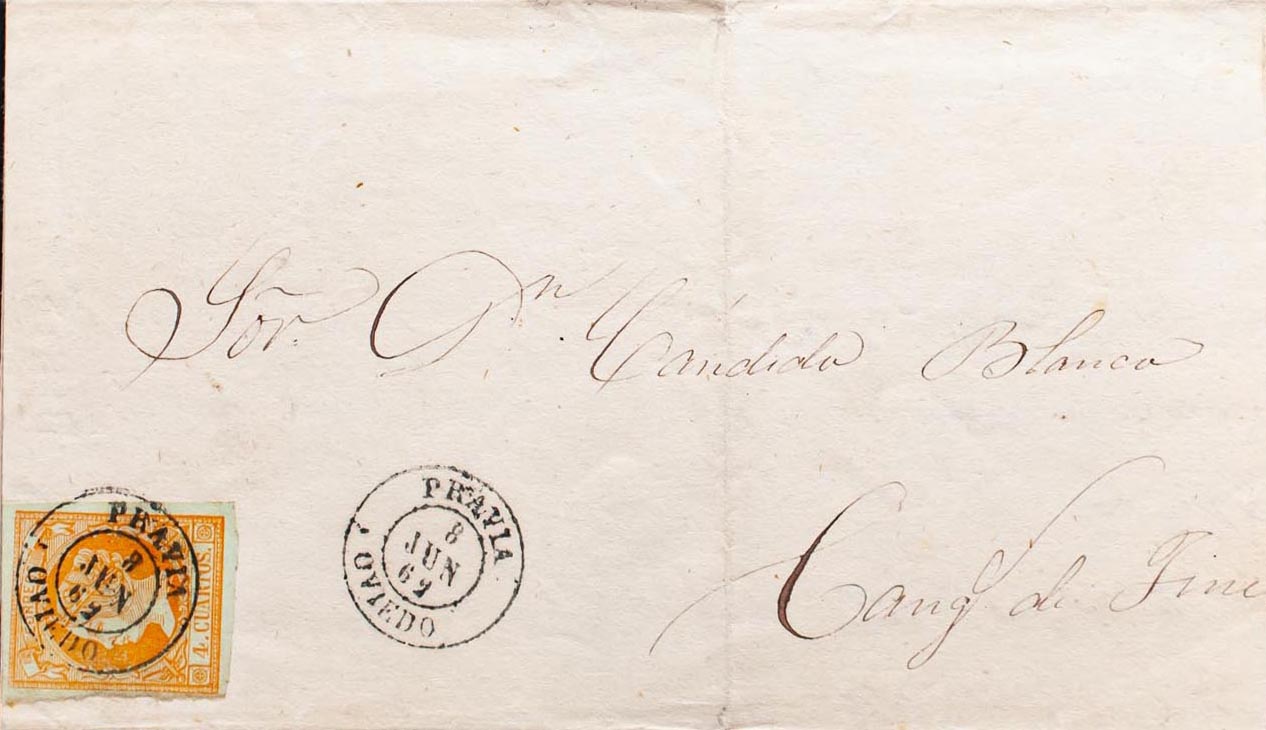 Sor. Dn. Candido Blanco
PRAVIA
8
JUN
62
OVIEDO
PRAVIA
8
JUN
62
OVIEDO
4. CUARTOS.
Cangs. de Tineo